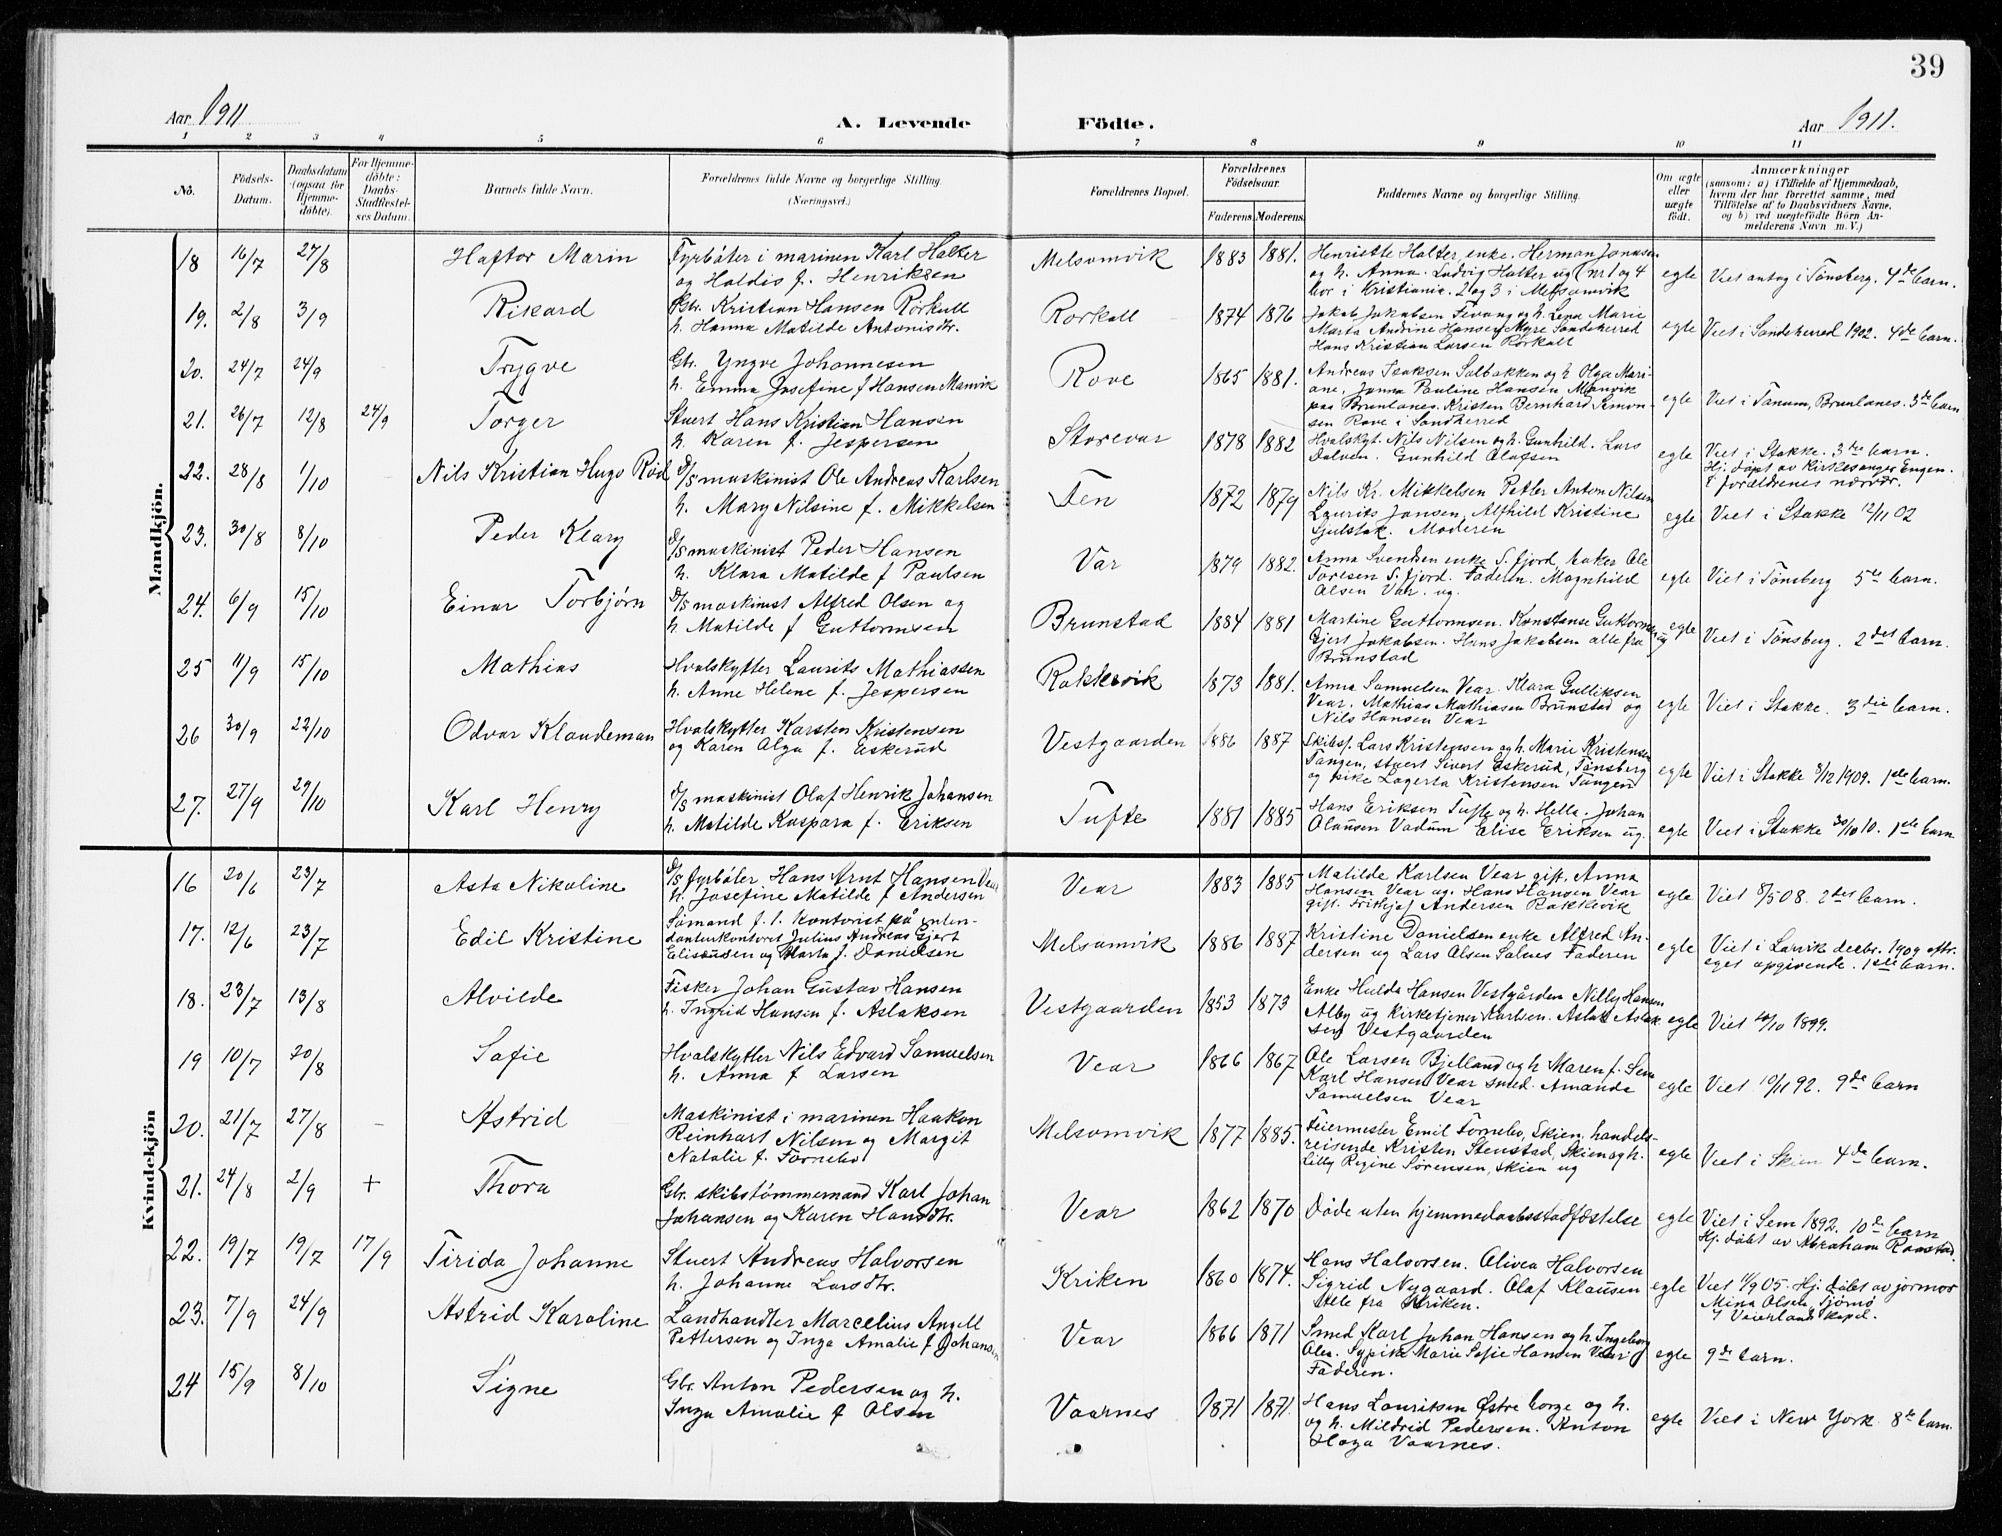 39
Aar 1911
A. Levende
Födte.
Aar 1911.
1 2 3 4 5 6 7 8 9 10 11
No.
Födsels-
Datum.
Daabsdatum
(ogsaa for
Hjemme-
döbte).
For Hjemme-
döbte:
Daabs-
Stadfæstel-
ses Datum.
Barnets fulde Navn.
Forældrenes fulde Navne og borgerlige Stilling.
(Næringsvei.)
Forældrenes Bopæl.
Forældrenes
Födselsaar.
Faderens. Moderens.
Faddernes Navne og borgerlige Stilling.
Om ægte
eller
uægte
födt.
Anmærkninger
(saasom: a) i Tilfælde af Hjemmedaab,
hvem der har forrettet samme, med
Tilföielse af to Daabsvidners Navne,
og b) ved uægtefödte Börn An-
melderens Navn m. V.)
Mandkjön.
18 16/7 27/8 Haftor Marin
Fyrbøter i marinen Karl Holter
og Haldis f. Henriksen
Melsomvik 1883 1881.
Henriette Holter, enke. Herman Jonassen
og h. Anna. Ludvig Holter ug (nr 1 og 4
bor i Kristiania. 2 og 3 i Melsomvik
egte Viet antag i Tønsberg. 4de barn.
19. 2/8 3/9 Rikard
Gbr. Kristian Hansen Rørkoll
h. Hanna Matilde Antonisdtr.
Rørkoll 1874 1876
Jakob Jakobsen Fevang og h. Lena Marie
Marta Andrine Hansen Myre Sandeherred
Hans Kristian Larsen Rørkoll
egte Viet i Sandeherred 1902. 4de barn.
20. 24/7 24/9 Trygve
Gbr. Yngve Johannesen
h. Emma Josefine f Hansen Manvik
Rove 1865 1881.
Andreas Isaksen Solbakken og h Olga Mari-
ane, Janna Pauline Hansen Manvik
paa Brunlanes. Kristen Bernhard Simon-
sen Rove i Sandherred
egte Viet i Tanum, Brunlanes. 3de barn
21. 26/7 12/8 24/9 Torger
Stuert Hans Kristian Hansen
h. Karen f. Jespersen
Storevar 1878 1882
Hvalskyt. Nils Nilsen og h. Gunhild. Lars
Dalven. Gunhild Olafsen
egte Viet i Stokke. 3die barn.
Hj. døpt av kirkesanger Engen.
i forældrenes nærvær.
22. 28/8 1/10 Nils Kristian Hugo Rød
D/S maskinist Ole Andreas Karlsen
h. Mary Nilsine f. Mikkelsen
Fen 1872 1879
Nils Kr. Mikkelsen Petter Anton Nilsen
Laurits Jansen, Alfhild Kristine
Gjulstok. Moderen
egte Viet i Stokke 12/11 02
23. 30/8 8/10 Peder Klary
D/S maskinist Peder Hansen
h. Klara Matilde f Paulsen
Var 1879 1882.
Anna Svendsen enke S. fjord, baker Ole
Toresen S. fjord. Faderen. Magnhild
Olsen Var. ug.
egte Viet i Tønsberg 5te barn.
24. 6/9 15/10 Einar Torbjørn
D/S maskinist Alfred Olsen og
h. Matilde f Guttormsen
Brunstad 1884 1881
Martine Guttormsen. Konstanse Guttormsen
Gjert Jakobsen. Hans Jakobsen alle fra ug
Brunstad
egte Viet i Tønsberg. 2det barn.
25 11/9 15/10 Mathias
Hvalskytter Laurits Mathiassen
h. Anne Helene f. Jespersen
Rakkevik 1873 1881.
Anna Samuelsen Vear. Klara Gulliksen
Vear. Mathias Mathiasen Brunstad og
Nils Hansen Vear
egte Viet i Stokke. 3die barn.
26 30/9 22/10 Odvar Klaudeman
Hvalskytter Karsten Kristensen
og Karen Olga f. Eskerud
Vestgaarden 1886 1887
Skibsf. Lars Kristensen og h. Marie Kristensen
Tangen, stuert Sivert Eskerud, Tønsberg
og pike Lagerta Kristensen Tangen
egte Viet i Stokke 8/12 1909. 1ste barn.
27. 27/9 29/10 Karl Henry
D/S maskinist Olaf Henrik Johansen
h. Matilde Kaspara f. Eriksen
Tufte 1881 1885
Hans Eriksen Tufte og h. Hella. Johan
Olausen Vadum Elise Eriksen ug.
egte Viet i Stokke 30/10 10. 1ste barn.
Kvindekjön
16 20/6 23/7 Asta Nikoline
D/S fyrbøter Hans Arnt Hansen Vear
h. Josefine Matilde f Andersen
Vear 1883 1885
Matilde Karlsen Vear gift. Anna
Hansen Vear ug. Hans Hansen Vear
gift. Frithjof Andersen Rakkevik
egte Viet 8/5 08. 2det barn.
17. 12/6 23/7 Edil Kristine
Sømand f. t. kontorist på inten-
danturkontoret Julius Andreas Gjert
Elisausen og Marta f. Danielsen
Melsomvik 1886 1887
Kristine Danielsen enke Alfred An-
dersen ug Lars Olsen Salnes Faderen
egte Viet i Larvik decbr. 1909 eftr.
eget opgivende. 1ste barn.
18. 23/7 13/8 Alvilde
Fisker Johan Gustav Hansen
h. Ingrid Hansen f. Aslaksen
Vestgaarden 1853 1873
Enke Hulda Hansen Vestgården Nilly Hansen
Alby og kirketjener Karlsen. Aslak Aslak-
sen Vestgaarden
egte Viet 20/10 1899.
19 10/7 20/8 Safie
Hvalskytter Nils Edvard Samuelsen
h. Anna f Larsen
Vear 1866 1867
Ole Larsen Bjelland og h Maren f. Sem
Karl Hansen Vear smed. Amanda
Samuelsen Vear
egte Viet 10/11 92. 9de barn
20. 21/7 27/8 - Astrid
Maskinist i marinen Haakon
Reinhart Nilsen og Margit
Natalie f. Fornebo
Melsomvik 1877 1885.
Feiermester Emil Fornebo, Skien, handels-
reisende Kristen Stenstad, Skien og h.
Lilly Regine Sørensen, Skien ug
egte Viet i Skien 4de barn.
21. 24/8 2/9 + Thora
Gbr. skibstømmermand Karl Johan
Johansen og Karen Hansdtr.
Vear 1862 1870
Døde uten hjemmedaabsstadfæstelse
egte Viet i Sem 1892. 10de barn
Hj. døbt av Abraham Ramstad.
22. 19/7 19/7 17/9 Tirida Johanne
Stuert Andreas Halvorsen
h. Johanne Larsdtr.
Kriken 1860 1874.
Hans Halvorsen. Olivea Halvorsen
Sigrid Nygaard. Olaf Klausen
Alle fra Kriken.
egte Viet 11/9 05. Hj. døbt av jormor
Mina Olsen, Tjømø
i Veierland kapel.
23. 7/9 24/9 Astrid Karoline
Landhandler Marcelius Angell
Pettersen og Inga Amalie f Johansen
Vear 1866 1871
Smed Karl Johan Hansen og h. Ingeborg
Olea. Sypike Marie Sofie Hansen Vear
Faderen.
egte 9de barn.
24 15/9 8/10 Signe
Gbr. Anton Pedersen og h.
Inga Amalie f Olsen
Vaarnes 1871 1871.
Hans Lauritsen Østre borge og h.
og h. Mildrid Pedersen. Anton
Haga Vaarnes.
egte Viet i New York. 8de barn.